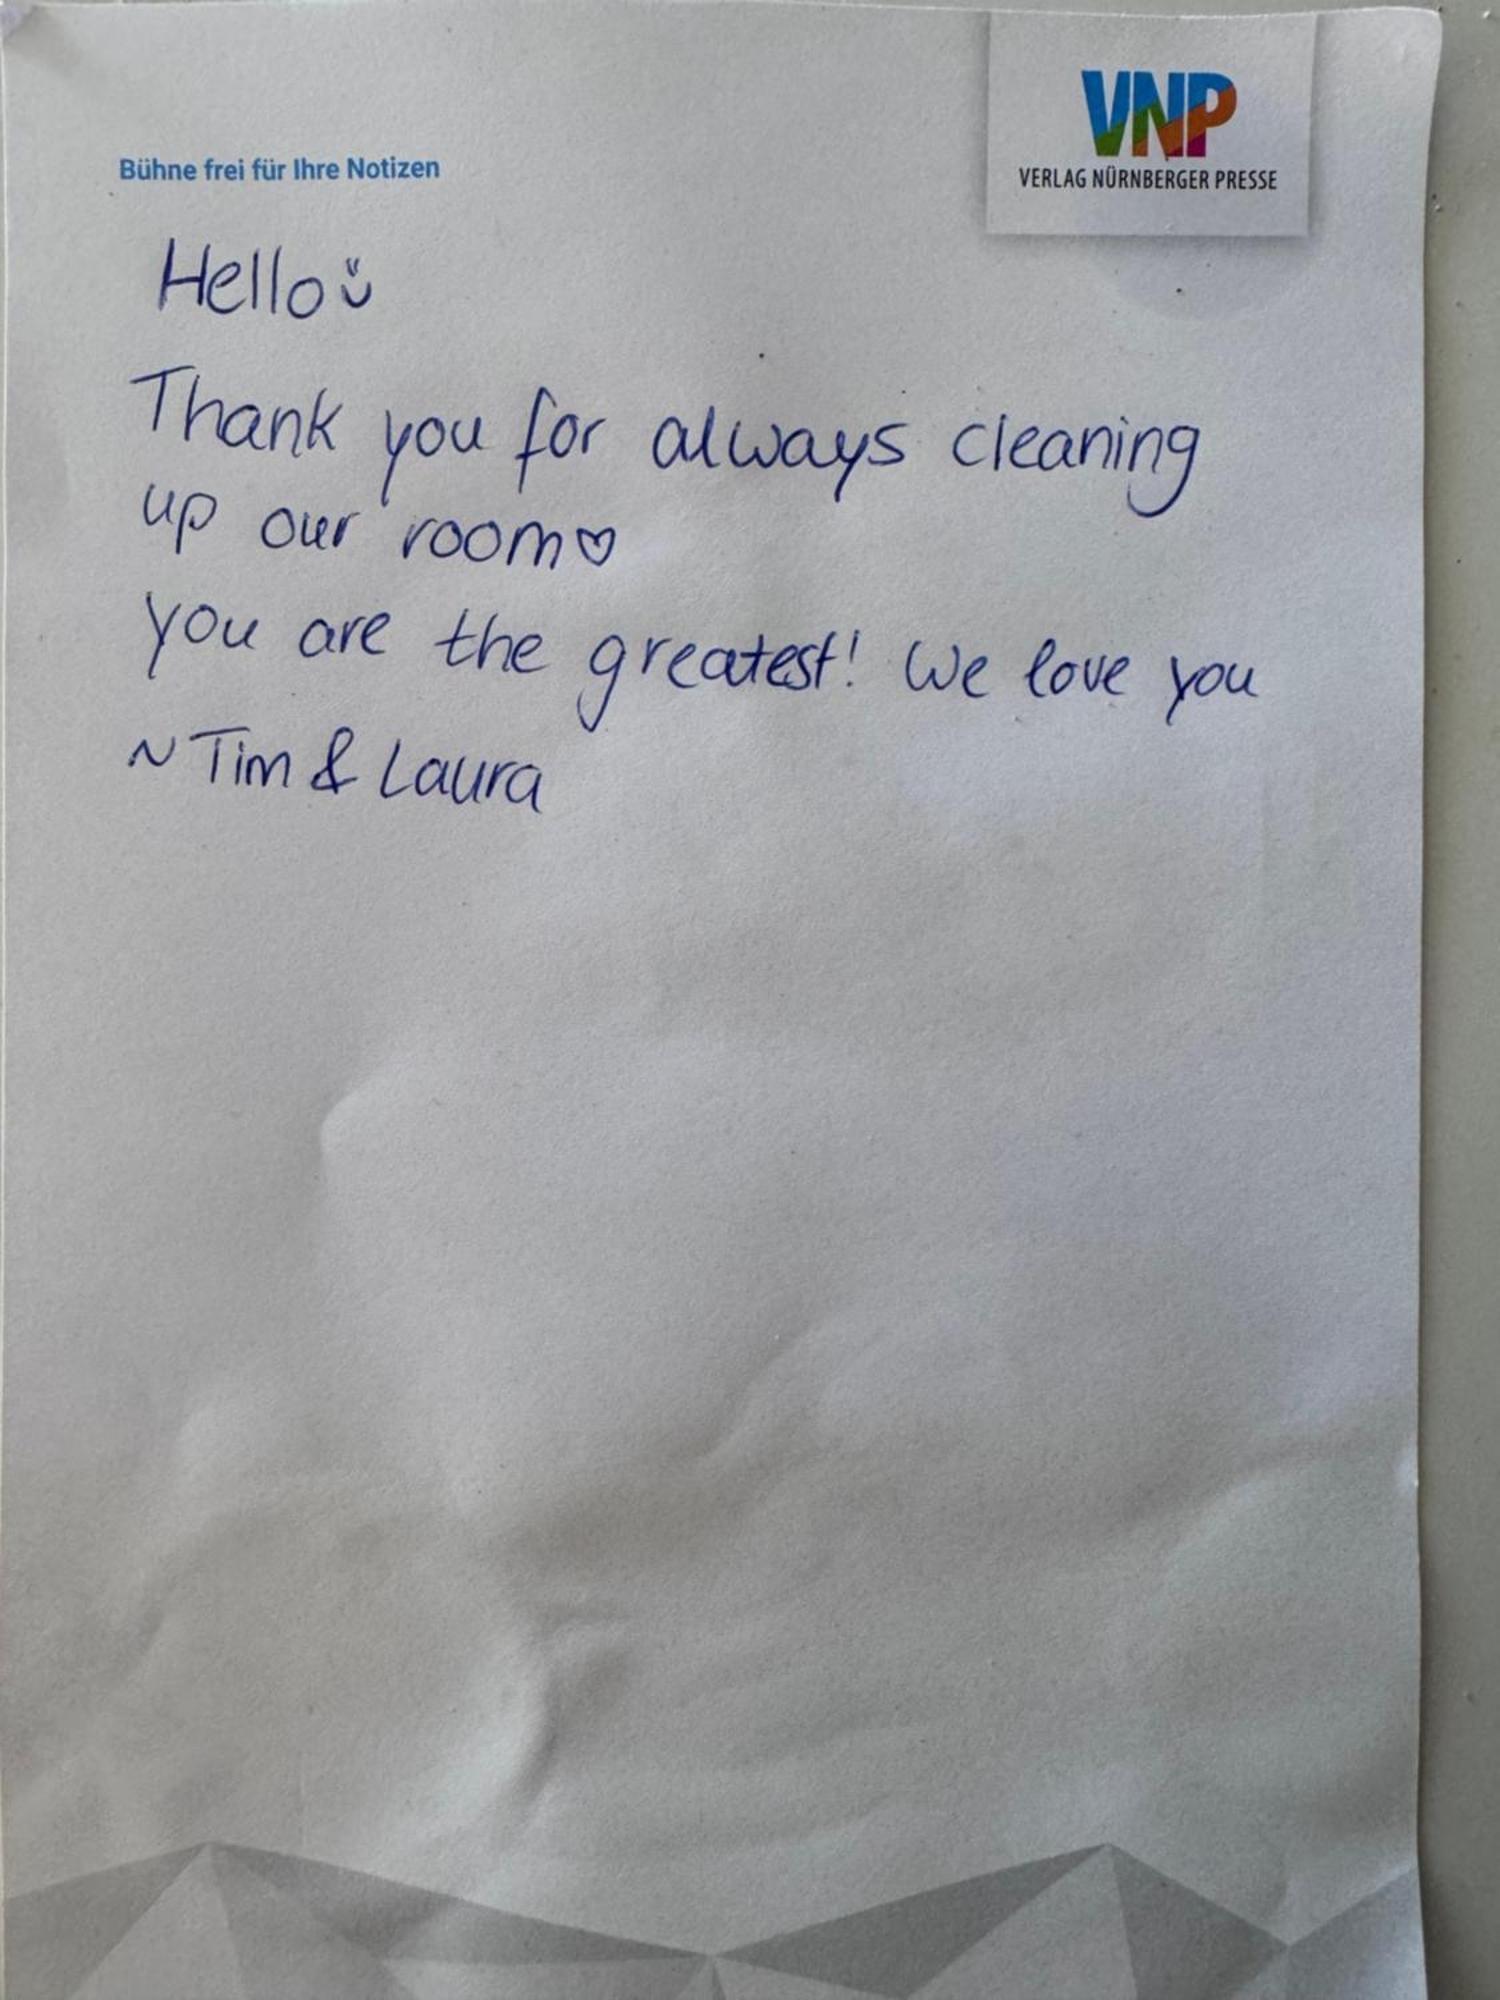 VNP
VERLAG NÜRNBERGER PRESSE
Bühne frei für Ihre Notizen
Hello
Thank you for always cleaning
up our room♡
you are the greatest! We love you
~ Tim & Laura